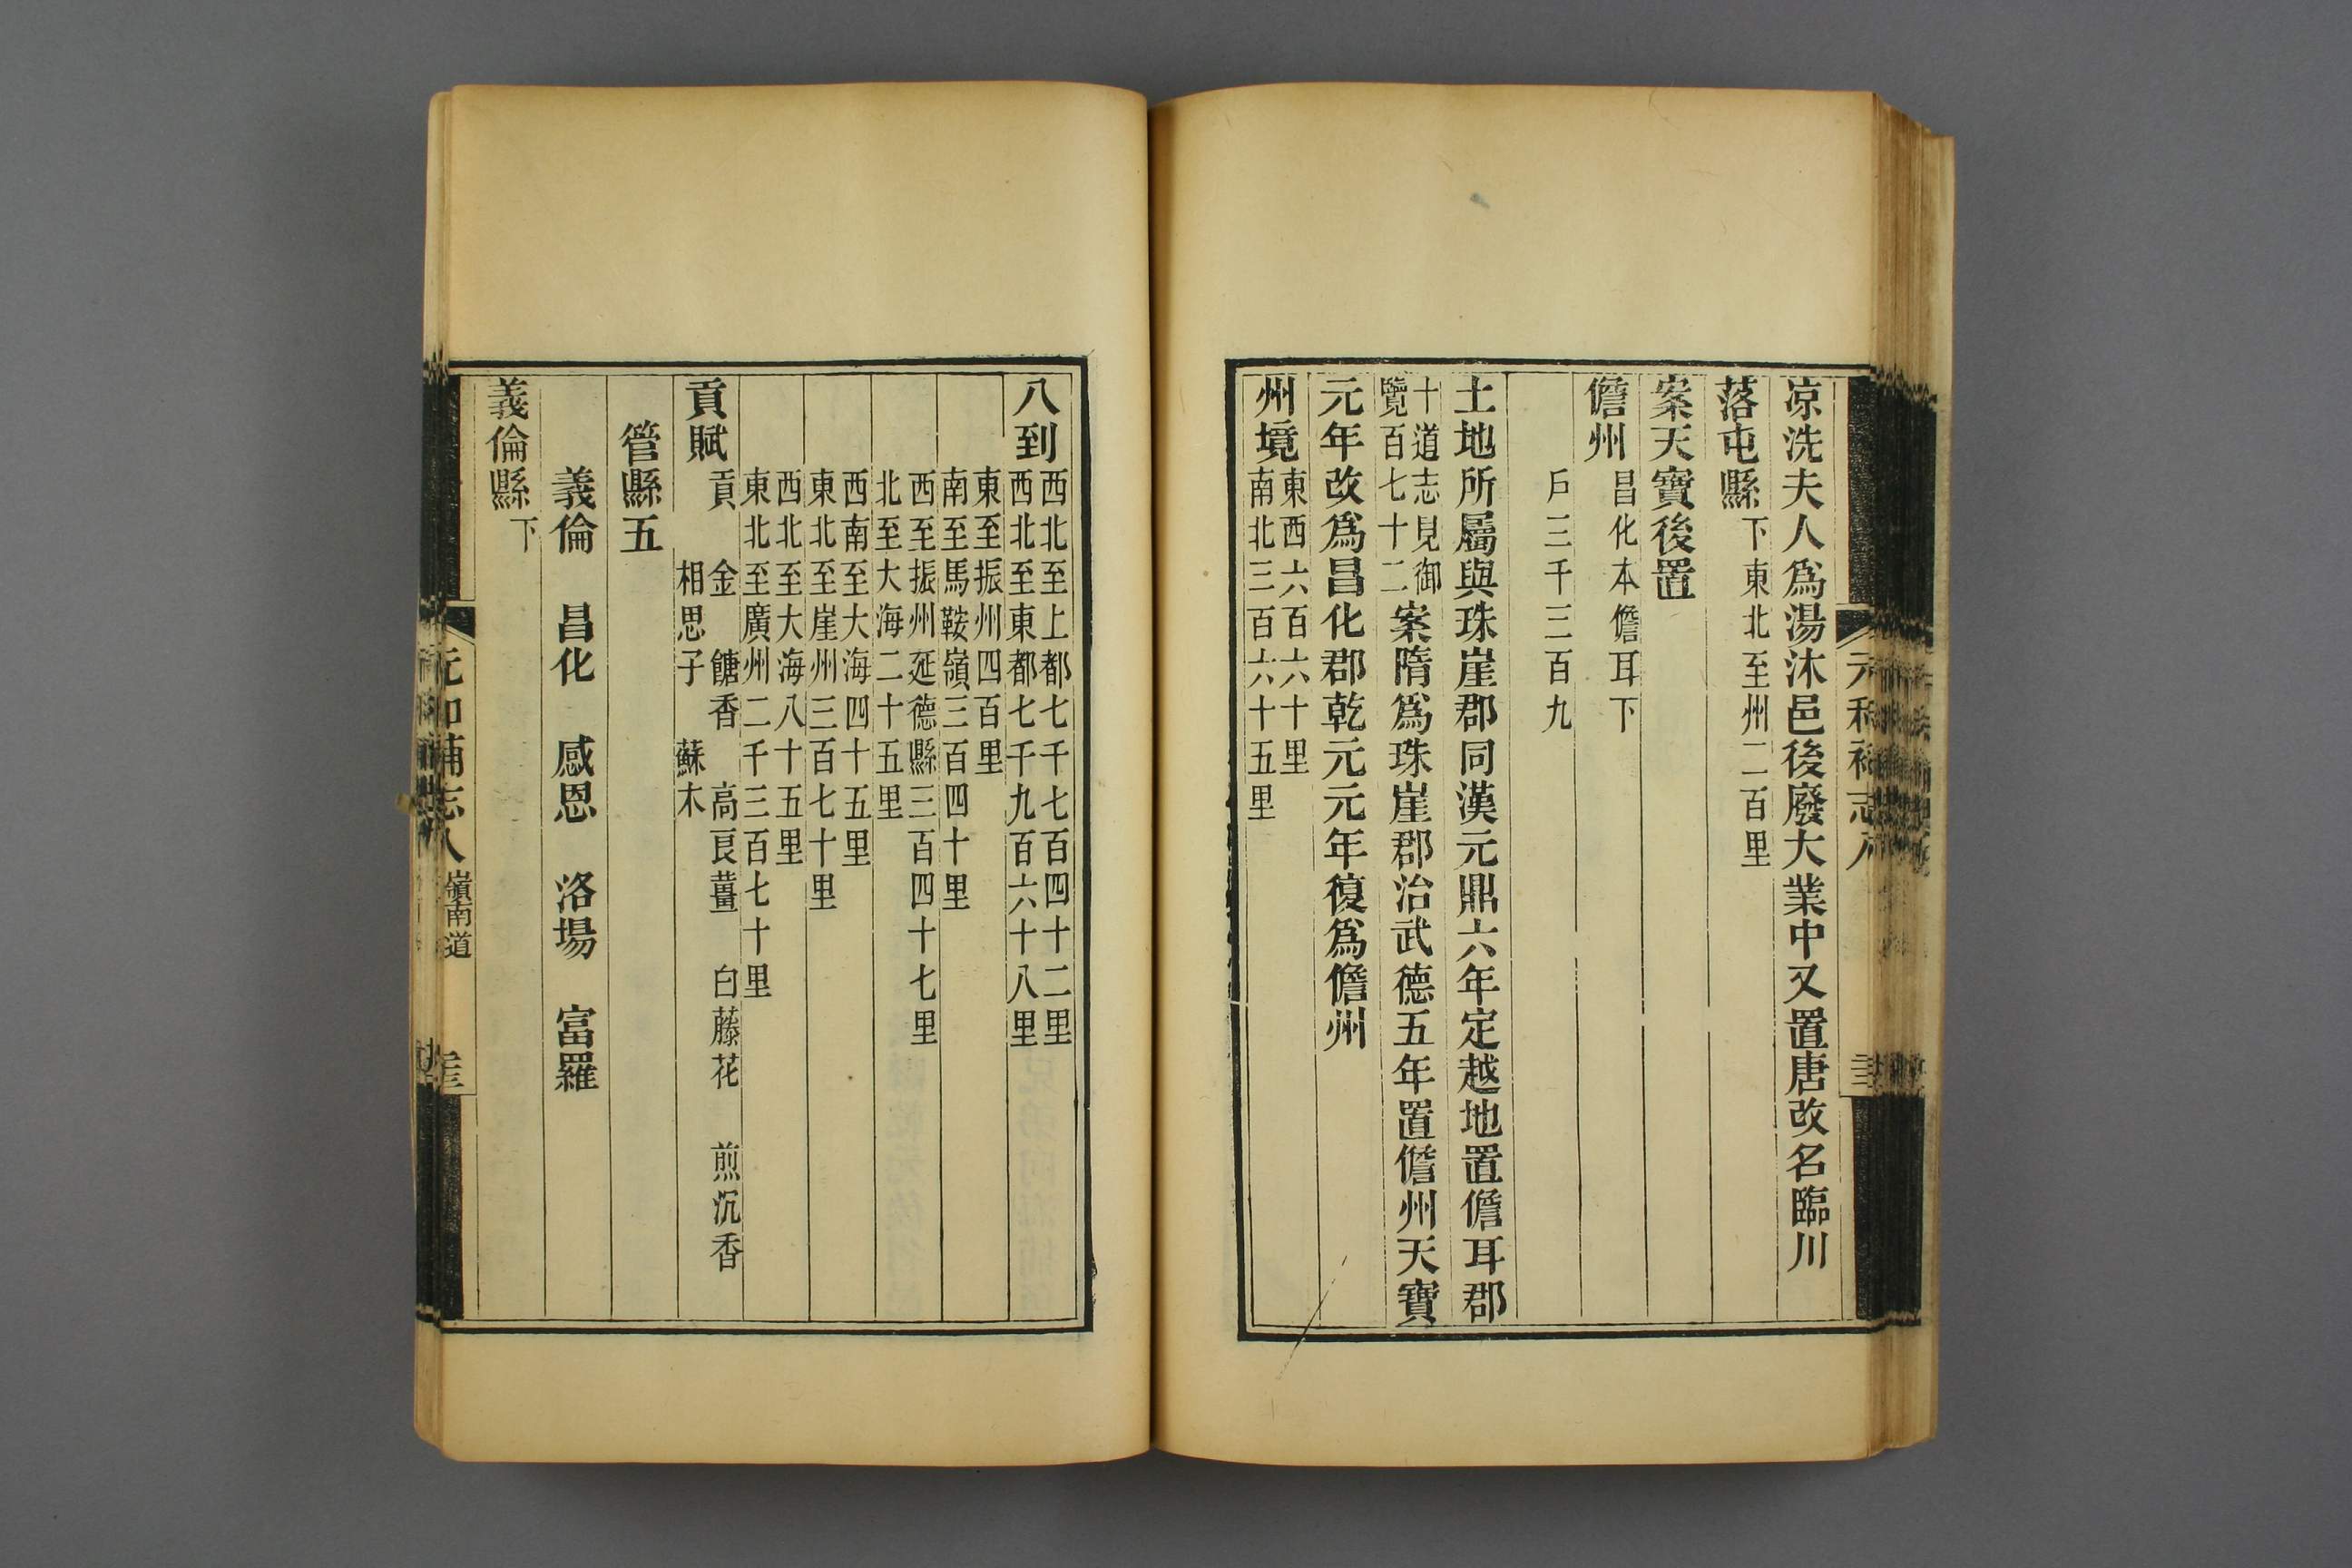 凉洗夫人爲湯沐邑後廢大業中又置唐改名臨川
落屯縣下東北至州二百里
案天寶後置
儋州昌化本儋耳下
戶三千三百九
土地所屬與珠崖郡同漢元鼎六年定越地置儋耳郡
十道志見御
覽百七十二
案隋爲珠崖郡治武德五年置儋州天寶
元年改爲昌化郡乾元元年復爲儋州
州境
東西六百六十里
南北三百六十五里
八到
西北至上都七千七百四十二里
西北至東都七千九百六十八里
東至振州四百里
南至馬鞍嶺三百四十里
西至振州延德縣三百四十七里
北至大海二十五里
西南至大海四十五里
東北至崖州三百七十里
西北至大海八十五里
東北至廣州二千三百七十里
貢賦
貢 金 餹香 高良薑 白藤花 煎沉香
相思子 蘇木
管縣五
義倫 昌化 感恩 洛場 富羅
義倫縣下
嶺南道